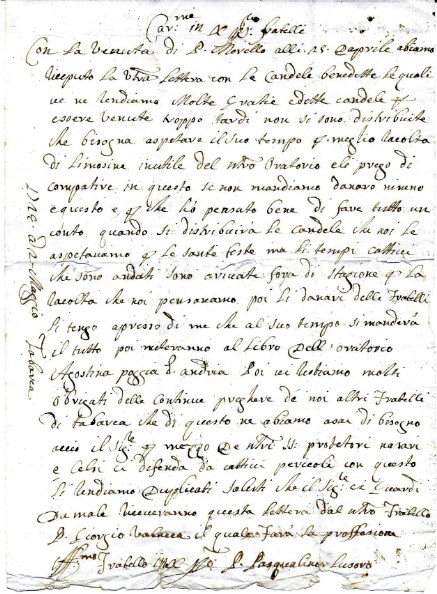 Car.me in X.po fratelli
Con la venuta di P. Morello alli 25 D'aprile abiamo
riceputo la Vtra lettera con le Candele benedette le quali
ve ne rendiamo Molte Gratie e dette candele p
essere venute troppo tardi non si sono distribuite
che bisogna aspetare il suo tempo p meglio racolta
di limosine in utile del Ntro Oratorio e li prego di
compatire in questo se non mandiamo danaro niuno
e questo e p che hò pensato bene di fare tutto un
conto quando si distribuirà le Candele che noi le
aspetavamo p le Sante feste ma li tempi cattivi
che sono andati sono arivate fora di stagione p la
racolta che noi pensavamo poi li danari delle fratelli
li tengo apresso di me che al suo tempo si manderà
il tutto poi meteranno al libro Dell'oratorio
Agostina poggia D. andria Poi vi restiamo molti
obrigati delle continue preghere de noi altri fratelli
di tabarca che di questo ne abiamo asai di bisogno
acciò il Sig.re p mezzo De Ntri SS. protetori
e Celsi ci defenda da cattivi pericoli con questo
li rendiamo Duplicati Saluti che il Sig.re ci Guardi
Da male riceveranno questa lettera dal Ntro fratello
P. Giorgio il quale farà la proffesione
Aff.mo fratello P. Pasqualino Lusoro
1712 a di 2 Maggio Tabarca